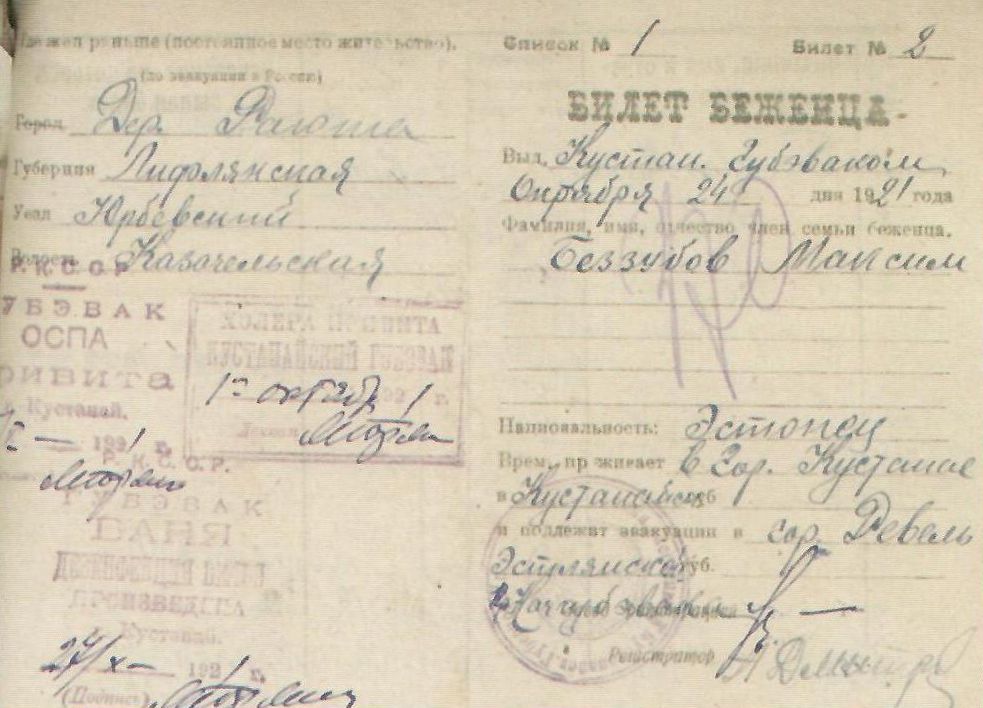 Где жил раньше (постоянное место жительство).
(до эвакуации в Россию)
Город Дер.
Губерния Лифлянская
Уезд Юрьевский
Волость
К.С.С.Р.
ГУБЭВАК
ОСПА
ПРИВИТА
г. Кустанай.
192 1 г.
ХОЛЕРА ПРИВИТА
КУСТАНАЙСКИЙ ГУБЭВАК
1 октября 192 1 г.
К.С.С.Р.
ГУБЭВАК
БАНЯ
ДЕЗИНФЕКЦИЯ ВЕЩЕЙ
ПРОИЗВЕДЕНА
г. Кустанай.
27/X— 192 1 г.
(Подпись)
Список № 1 Билет № 2
БИЛЕТ БЕЖЕНЦА
Выд. Кустан. Губэваком
Октября 24 дня 1921 года
Фамилия, имя, отчество член семьи беженца.
Беззубов Максим
Национальность: Эстонец
Врем. проживает в гор. Кустанае
в Кустанайской губ
и подлежит эвакуации в гор. Ревель
Эстлянской губ.
Регистратор